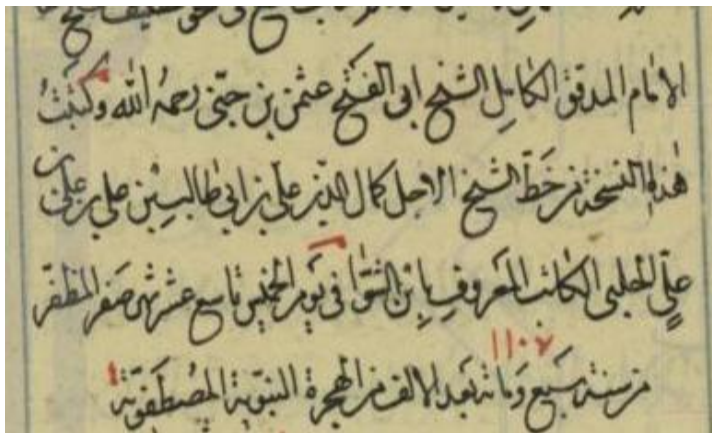 الامام المدقق الكامل الشيخ ابى الفتح عثمن بن جنى رحمه الله وكتبت
هذه النسخة من خط الشيخ الاجل كمال الدين على بن ابي طالب بن على بن على بن
على الحلبى الكاتب المعروف بابن الشوا فى يوم الخميس تاسع عشر شهر صفر المظفر
١١٠٧
من سنة سبع ومائة بعد الالف من الهجرة النبوية المصطفوية